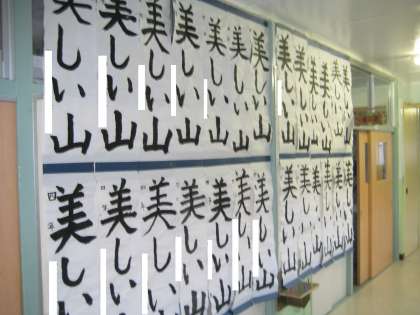 美しい山
美しい山
美しい山
美しい山
美しい山
美しい山
美しい山
美しい山
美しい山
美しい山
美しい山
美しい山
美しい山
四年
美しい
美しい
美しい
美しい山
美しい山
美しい山
美しい山
美しい山
美しい山
美しい山
美しい山
美しい山
美しい山